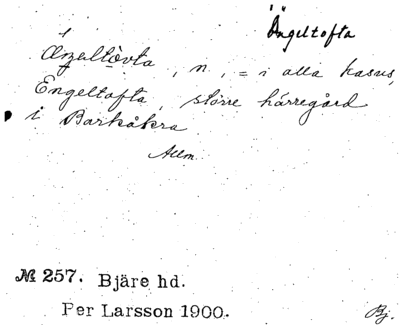 Ängeltofta
Æŋaltòvta, n, = i alla kasus,
Engeltofta, större härregård
i Barkåkra
Allm.
№ 257. Bjäre hd.
Per Larsson 1900.
Bj.